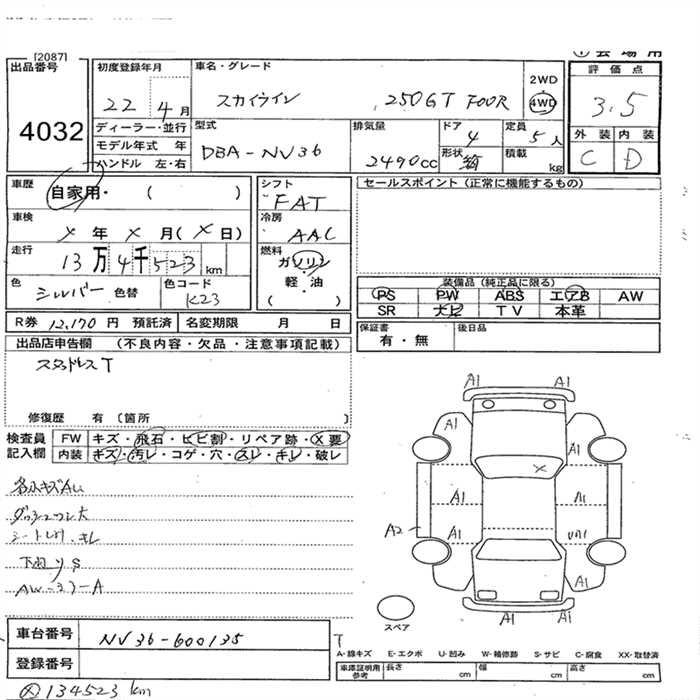 [2087]
① 会 場 用
出品番号
4032
初度登録年月
22 4月
ディーラー・並行
モデル年式 年
ハンドル 左・右
車名・グレード
スカイライン 250GT FOUR
2WD
4WD
型式
DBA-NV36
排気量
2490cc
ドア
4
形状
箱
定員
5人
積載
kg
評 価 点
3.5
外 装 内 装
C D
車歴
自家用・ ( )
車検
X 年 X 月(X 日)
走行
13万4千523km
色
シルバー 色替
色コード
K23
シフト
FAT
冷房
AAC
燃料
ガソリン
・
軽 ・ 油
( )
セールスポイント (正常に機能するもの)
装備品 (純正品に限る)
PS PW ABS エアB AW
SR ナビ TV 本革
R券 12,170 円 預託済 名変期限 月 日
保証書
有 ・ 無
後日品
出品店申告欄 (不良内容・欠品・注意事項記載)
スタッドレスT
修復歴 有 (箇所 )
検査員
記入欄
FW キズ・飛石・ヒビ割・リペア跡・X要
内装 キズ・汚レ・コゲ・穴・スレ・キレ・破レ
シートレ
下廻りS
A1 A1
A1
A1
A1 A1
A2 A1
A1 A1
A1 A1
スペア
車台番号
NV36-600135
登録番号
A-線キズ E-エクボ U-凹み W-補修跡 S-サビ C-腐食 XX-取替済
車庫証明用
参考
長さ cm 幅 cm 高さ cm
Ⓧ134523km